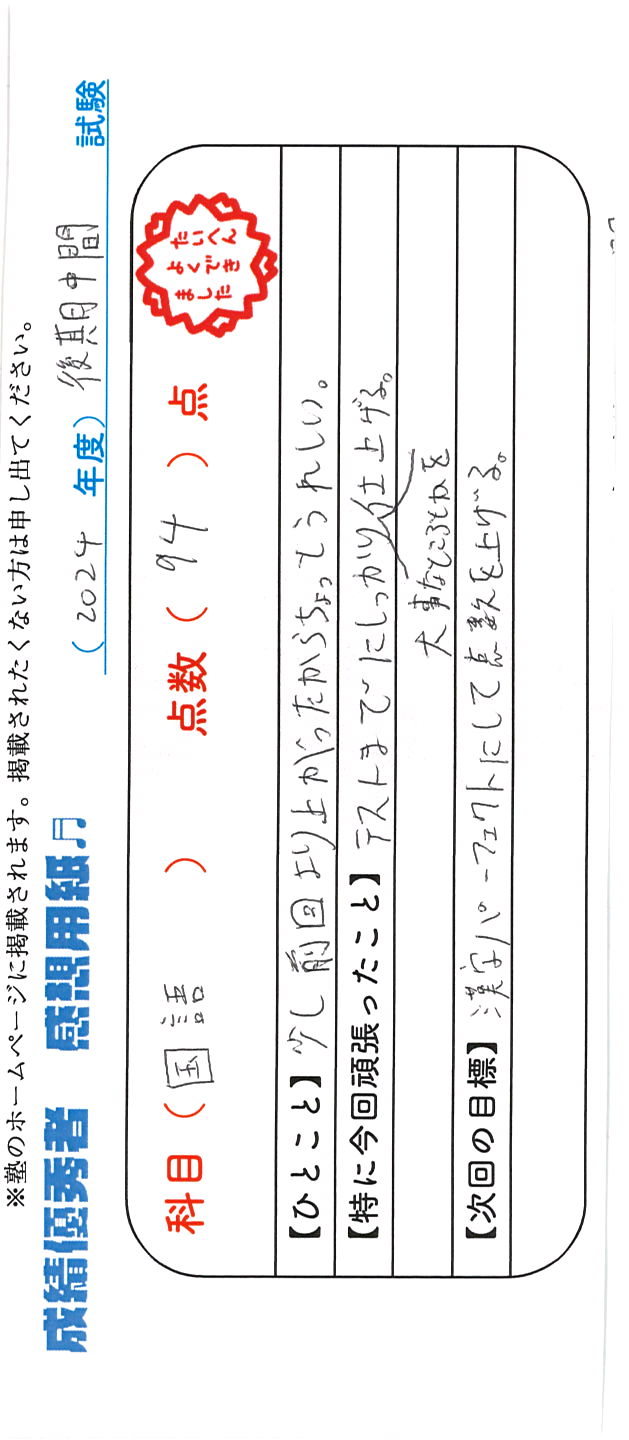 ※塾のホームページに掲載されます。掲載されたくない方は申し出てください。
成績優秀者 感想用紙♫
(2024 年度) 後期中間 試験
科目 ( 国語 ) 点数 ( 94 ) 点
たいへん
よくでき
ました
【ひとこと】少し前回より上がったからちょっとうれしい。
【特に今回頑張ったこと】テストまでにしっかり仕上げる。
大事なところとかを
【次回の目標】漢字パーフェクトにして点数を上げる。